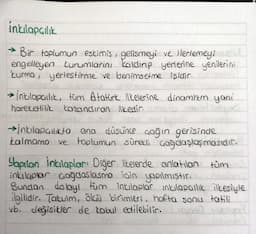 inkılapçılık
→ Bir toplumun eskimiş, gelişmeyi ve ilerlemeyi
engelleyen kurumlarını kaldırıp yerlerine yenilerini
kurma, yerleştirme ve benimsetme işidir.
→ inkılapçılık, tüm Atatürk ilkelerine dinamizm yani
hareketlilik kazandıran ilkedir.
→ inkılapçılıkta ana düşünce çağın gerisinde
kalmama ve toplumun sürekli çağdaşlaşmasıdır.
Yapılan İnkılaplar: Diğer ilkelerde anlatılan tüm
inkılaplar çağdaşlaşma için yapılmıştır.
Bundan dolayı tüm inkılaplar inkılapçılık ilkesiyle
ilgilidir. Takvim, ölçü birimleri, hafta sonu tatili
vb. değişikler de kabul edilebilir.